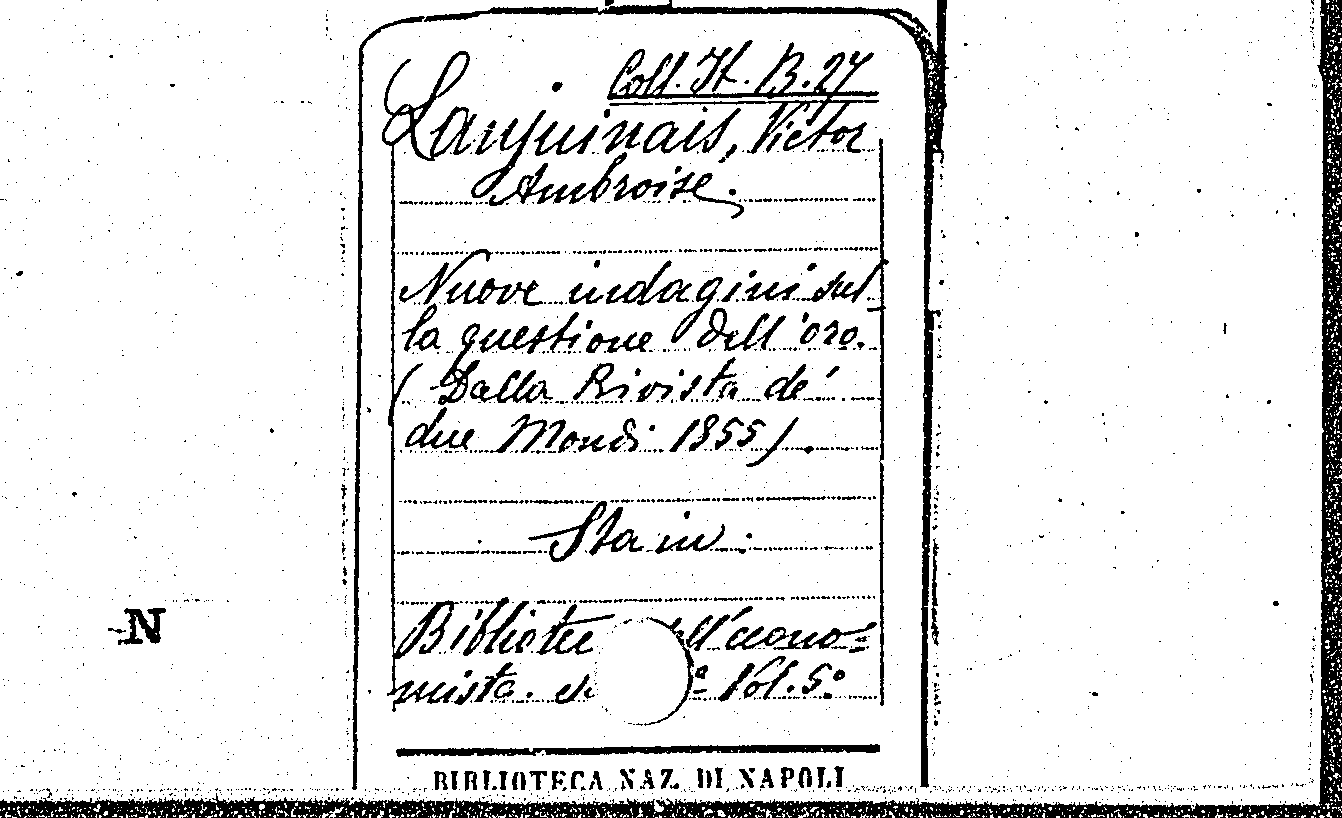 Coll. It. B. 27
Lanjuinais, Victor
Ambroise.
Nuove indagini sul
la questione dell'oro.
(Dalla Rivista de'
due Mondi 1855).
Sta in:
Bibliotec ell'econo=
mista. ª Vol. 5º
BIBLIOTECA NAZ. DI NAPOLI
N